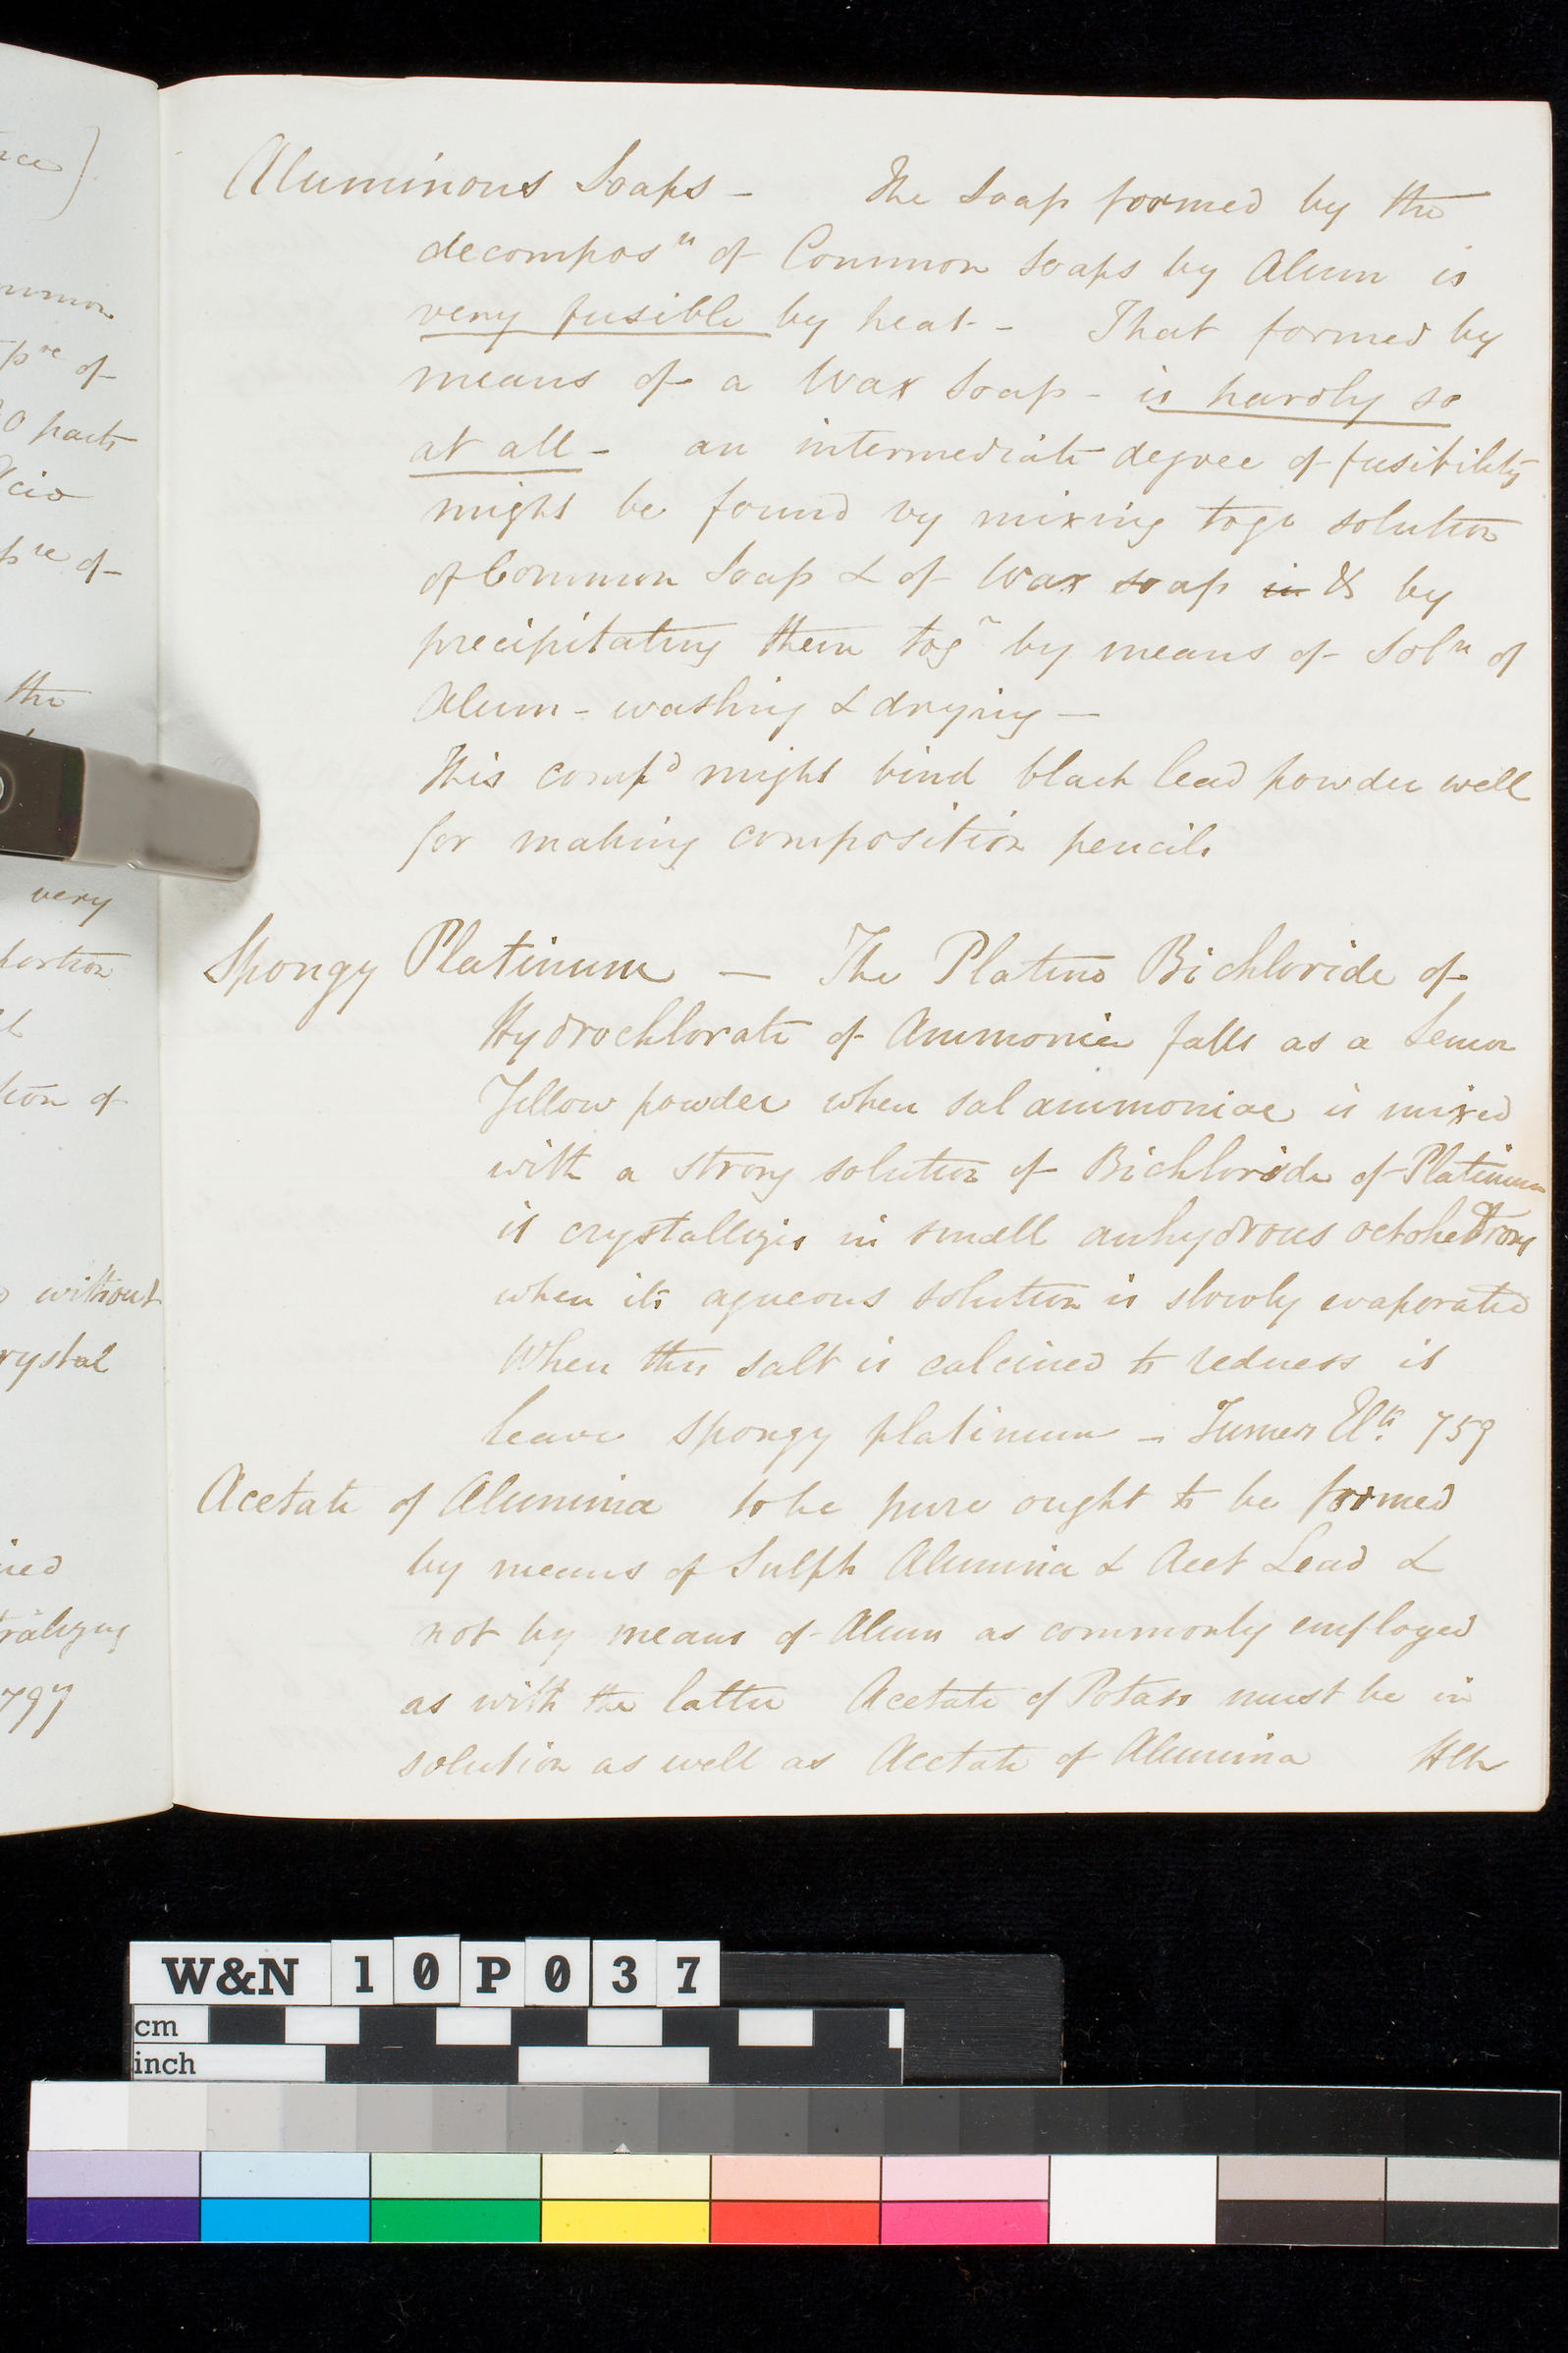 Aluminous Soaps - The Soap formed by the
decomposn of Common Soaps by Alum is
very fusible by heat - That formed by
means of a Wax Soap - is hardly so
at all - an intermediate degree of fusibility
might be found by mixing togr solution
of Common Soap & of Wax soap in & by
precipitating them togr by means of Soln of
Alum - washing & drying -
This compd might bind black lead powder well
for making composition pencils
Spongy Platinum - The Platino Bichloride of
Hydrochlorate of Ammonia falls as a Lemon
Yellow powder when sal ammoniac is mixed
with a strong solution of Bichloride of Platinum
it crystallizes in small anhydrous octohedrons
when its aqueous solution is slowly evaporated
When this salt is calcined to redness it
leave spongy platinum - Turners Elts 759
Acetate of Alumina to be pure ought to be formed
by means of Sulph Alumina & Acet Lead &
not by means of Alum as commonly employed
as with the latter Acetate of Potass must be in
solution as well as Acetate of Alumina
very
the
0 parts
without
W&N 10P037
cm
inch